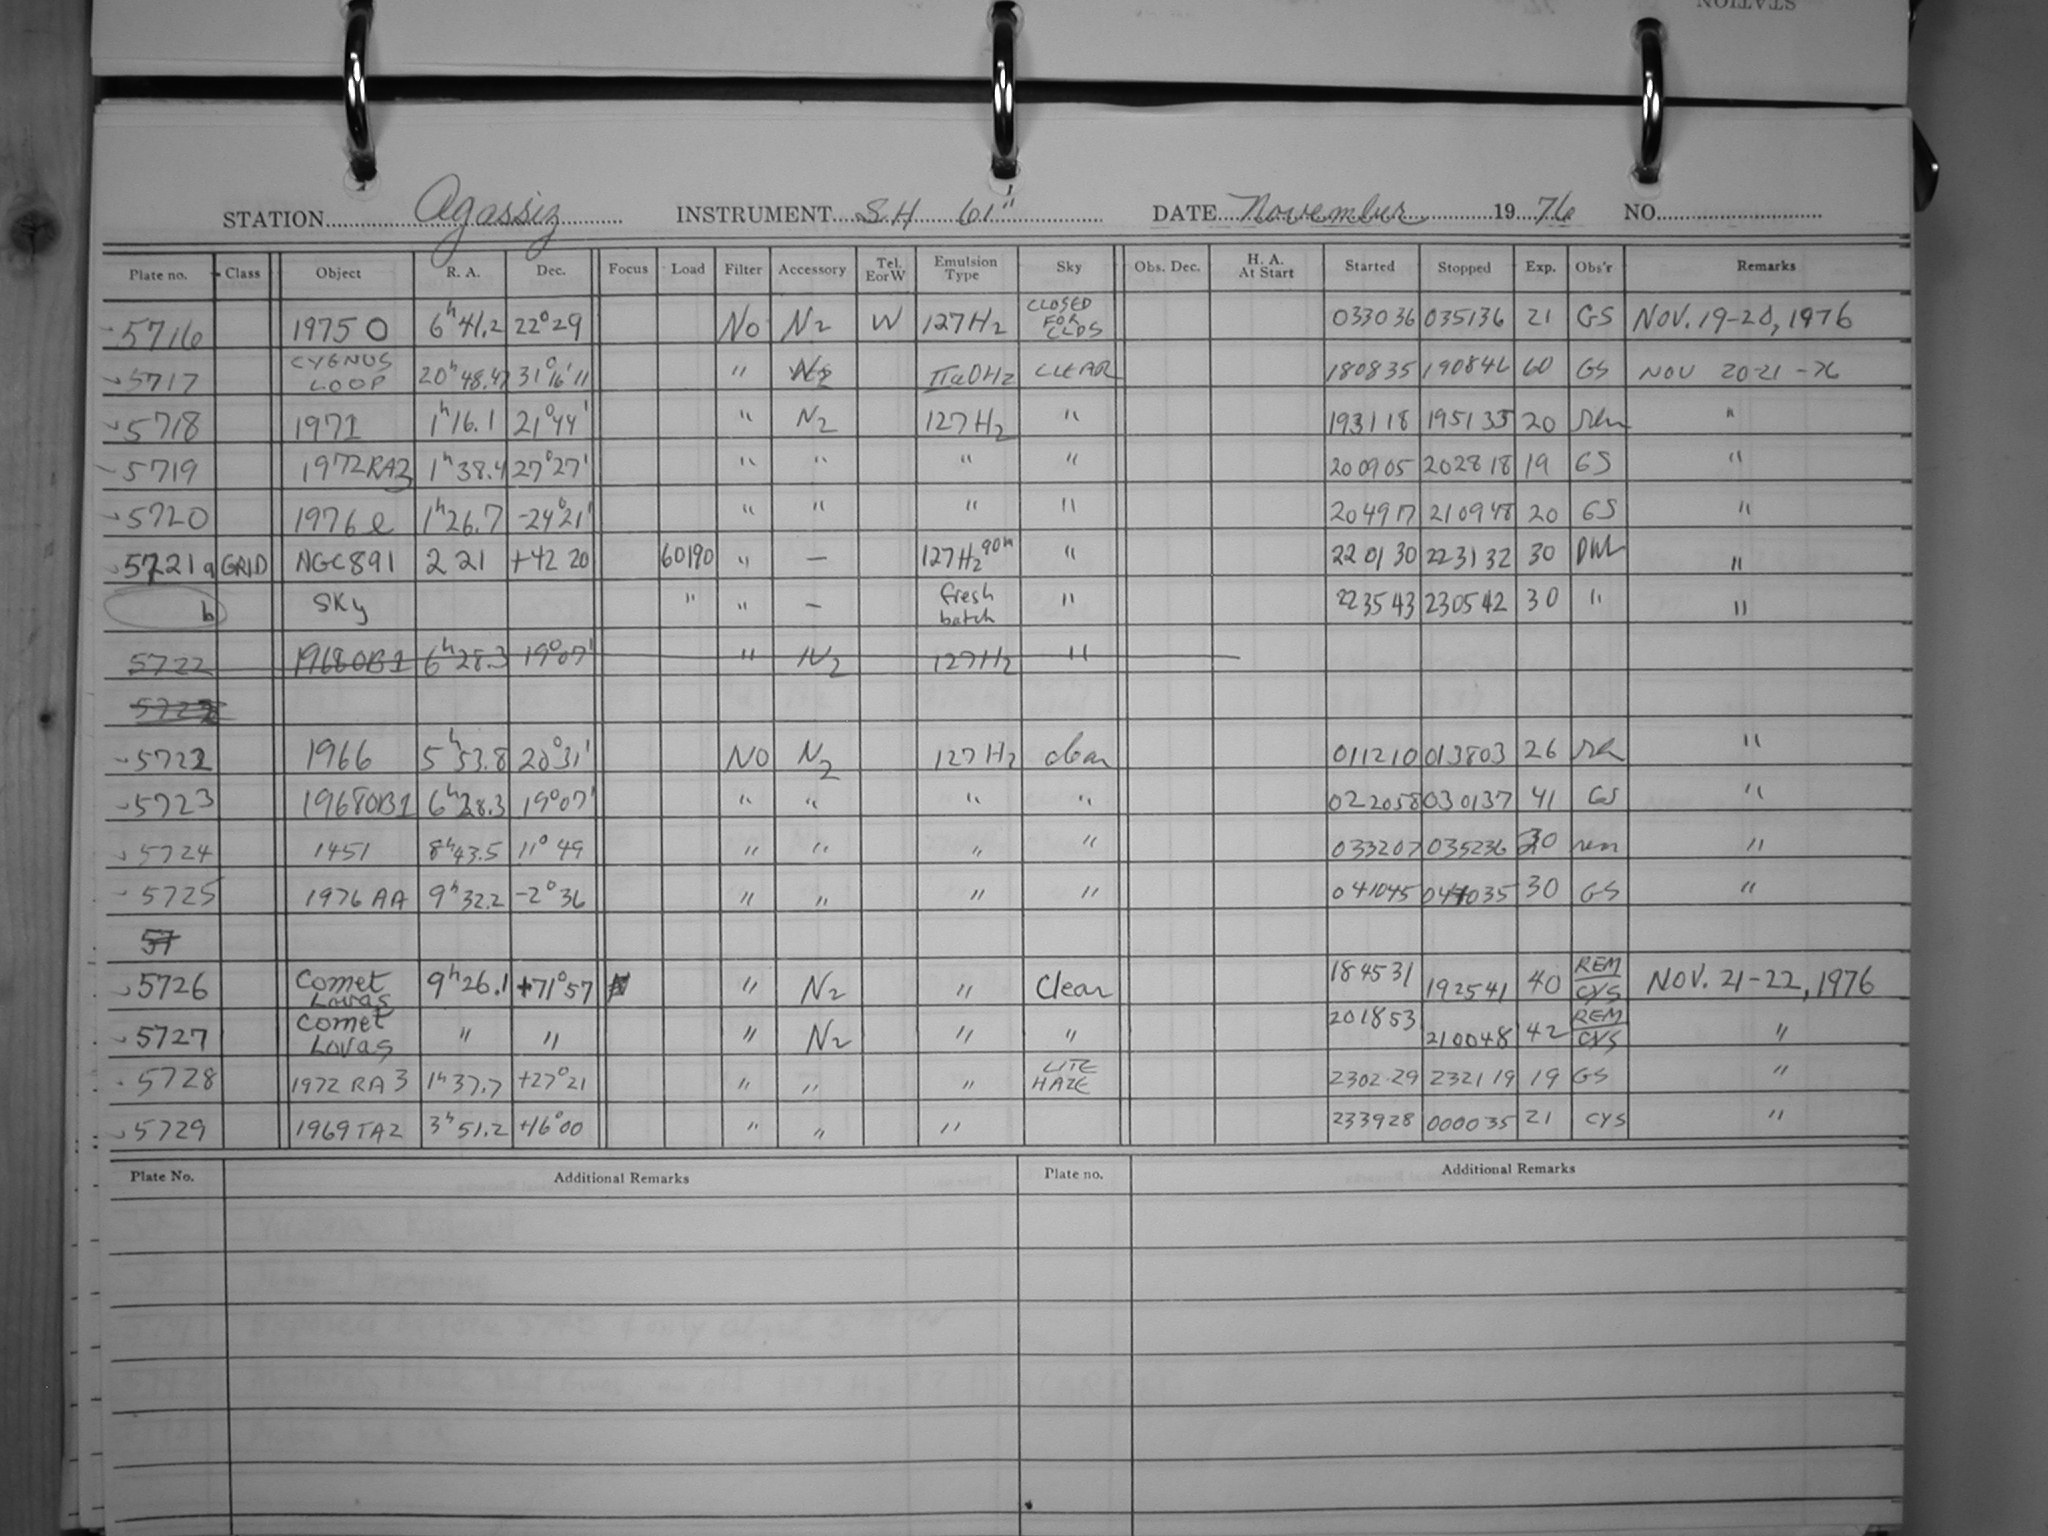 STATION
STATION Agassiz INSTRUMENT SH 61" DATE November 1976 NO.
Plate no. Class Object R. A. Dec. Focus Load Filter Accessory Tel. E or W Emulsion Type Sky Obs. Dec. H. A. At Start Started Stopped Exp. Obs'r Remarks
5716 1975 O 6h41.2 22°29 No N2 W 127H2 CLOSED FOR CLDS 033036 035136 21 GS NOV. 19-20, 1976
5717 CYGNUS LOOP 20h48.4 31°16'11 " N2 IIaOH2 CLEAR 180835 190842 60 GS NOV 20-21-76
5718 1971 1h16.1 21°44' " N2 127H2 " 193118 195135 20 rem "
5719 1972RA3 1h38.4 27°27' " " " " 200905 202818 19 GS "
5720 1976 e 1h26.7 -24°21' " " " " 204917 210948 20 GS "
5721a GRID NGC891 2 21 +42 20 60190 " — 127H2 90m " 220130 223132 30 "
b Sky " " — fresh batch " 223543 230542 30 " "
5722 1968OB1 6h28.3 19°07' " N2 127H2 "
5722
5722 1966 5h53.8 20°31' NO N2 127H2 clear 011210 013803 26 rem "
5723 1968OB1 6h28.3 19°07' " " " " 022058 030137 41 GS "
5724 1451 8h43.5 11°49 " " " " 033207 035236 20 rem "
5725 1976 AA 9h32.2 -2°36 " " " " 041045 044035 30 GS "
57
5726 Comet Lovas 9h26.1 +71°57 " N2 " Clear 184531 192541 40 REM/CYS NOV. 21-22, 1976
5727 Comet Lovas " " " N2 " " 201853 210048 42 REM/CYS "
5728 1972 RA3 1h37.7 +27°21 " " " LITE HAZE 2302.29 232119 19 GS "
5729 1969TA2 3h51.2 +16°00 " " " 233928 000035 21 CYS "
Plate No. Additional Remarks Plate no. Additional Remarks